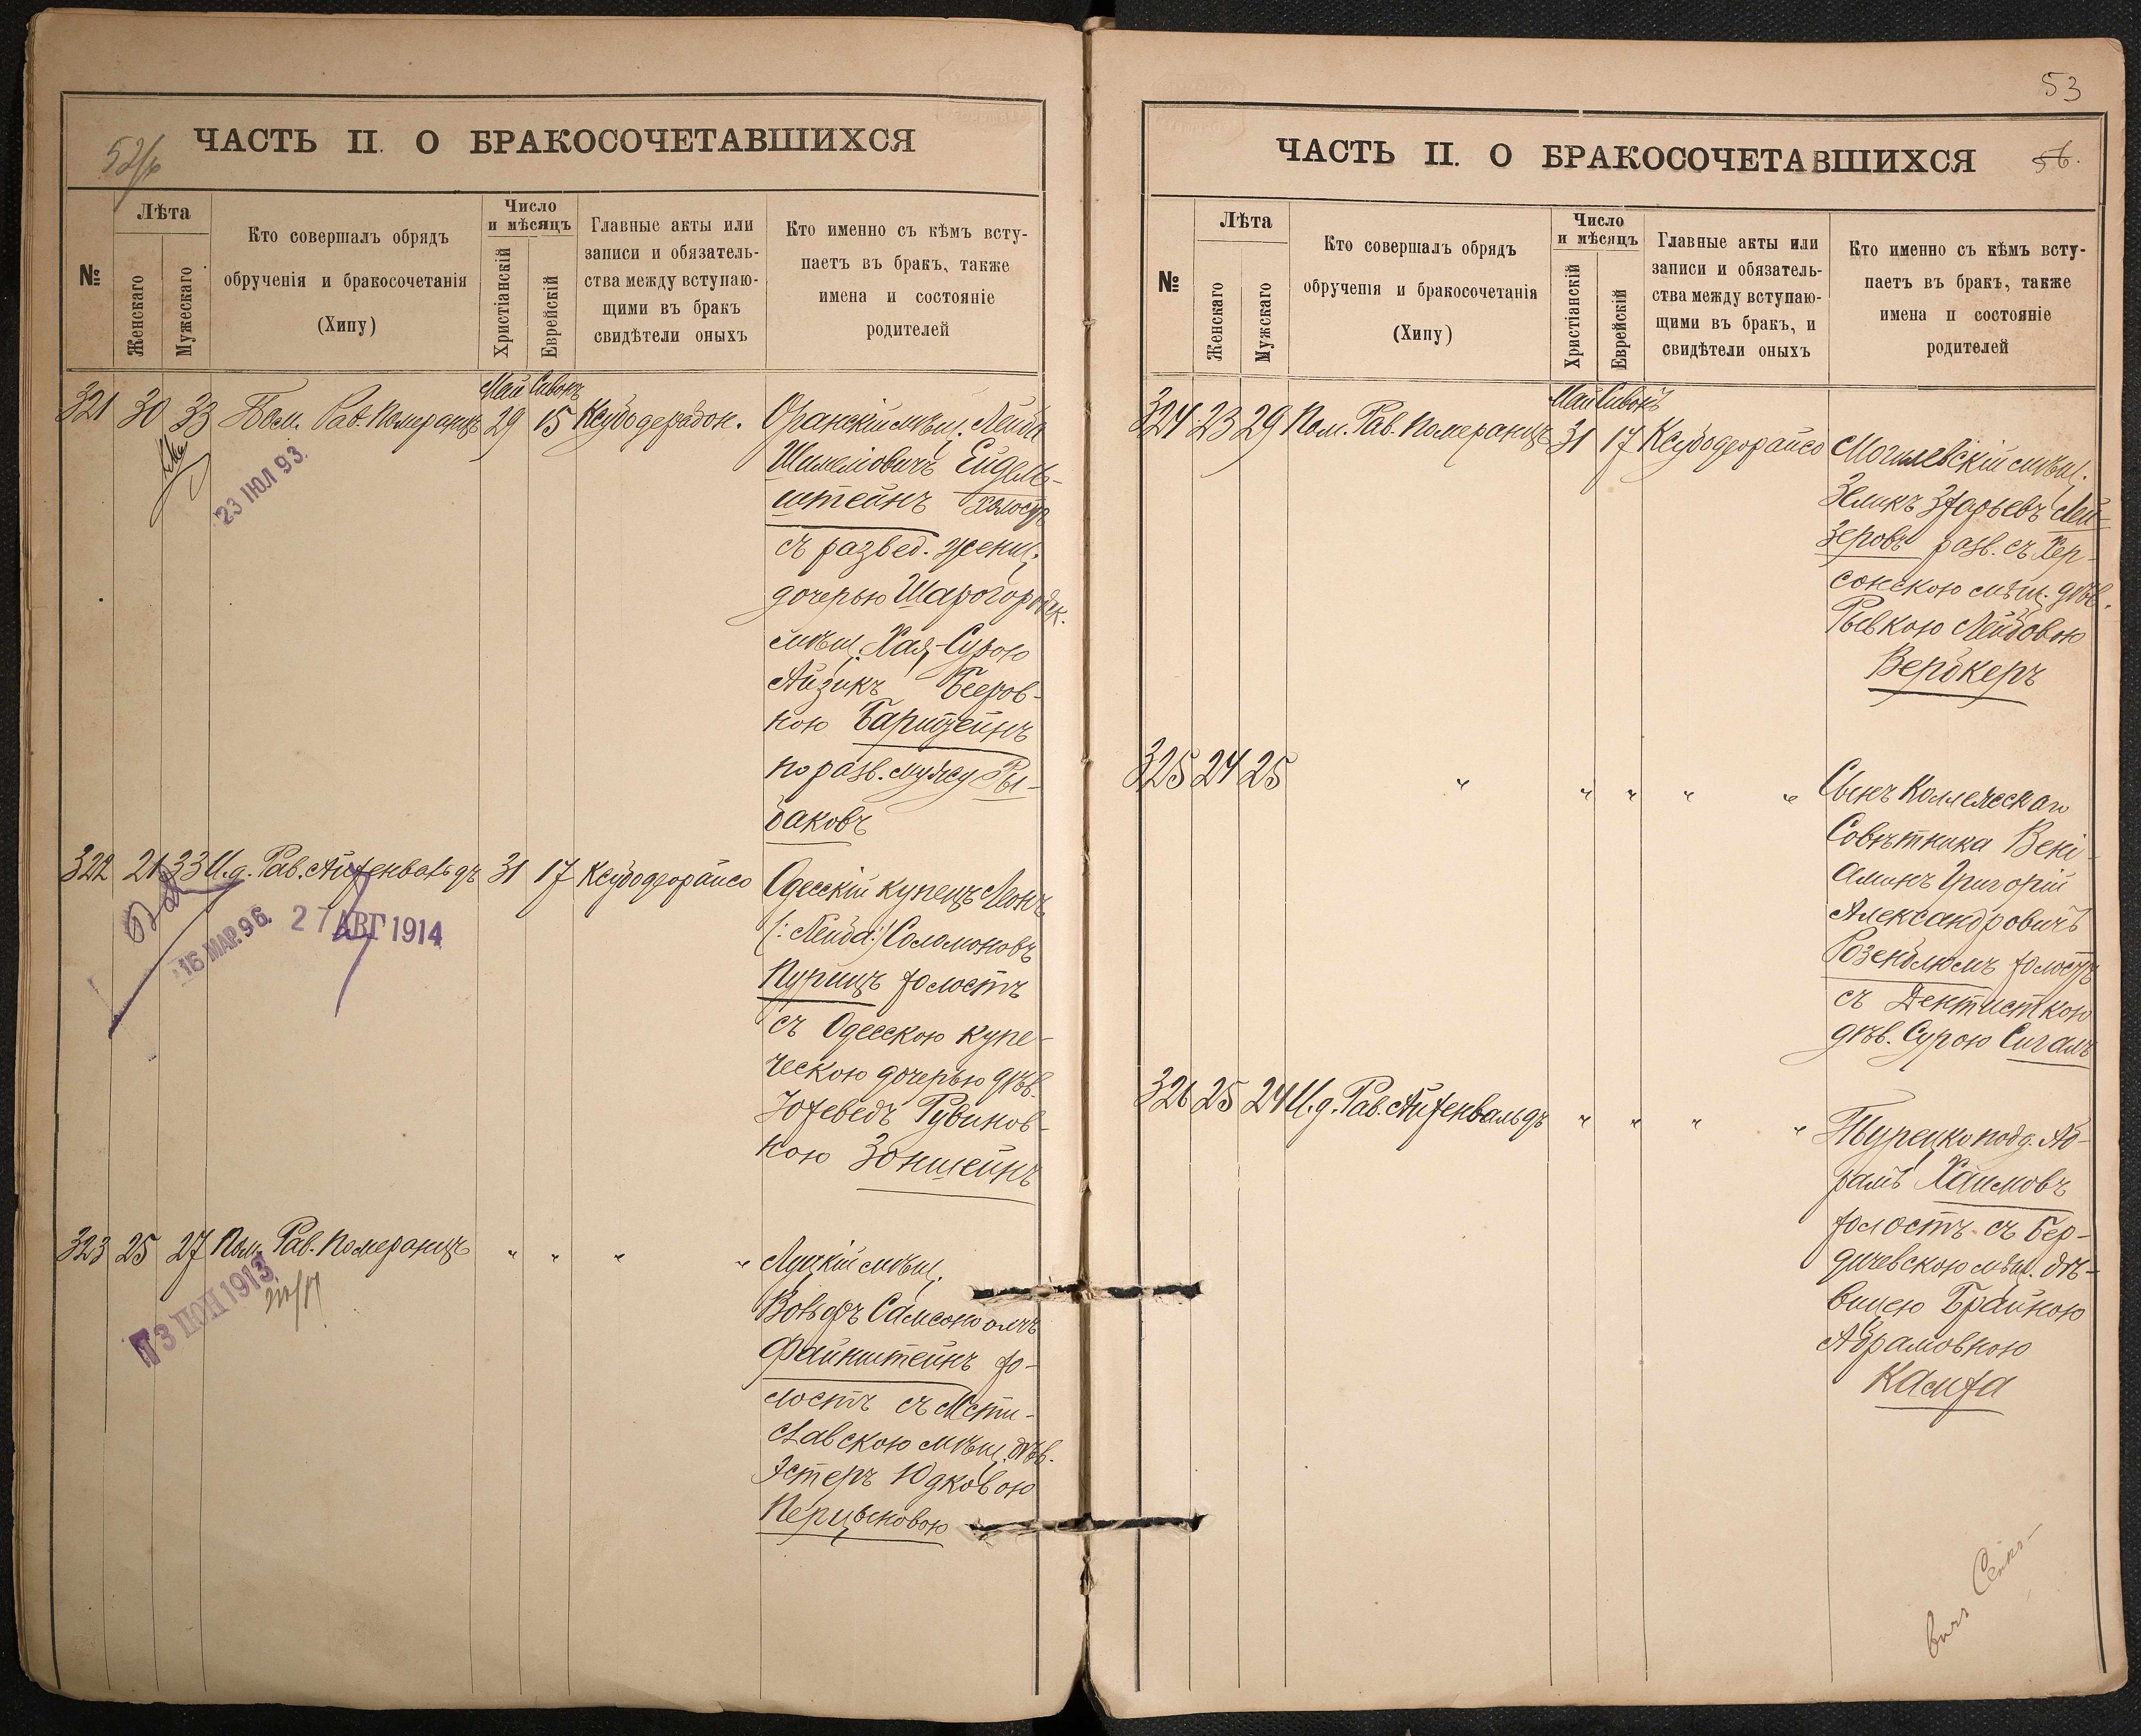 52/р
ЧАСТЬ II. О БРАКОСОЧЕТАВШИХСЯ
№
Лѣта
Женскаго
Мужескаго
Кто совершалъ обрядъ
обрученія и бракосочетанія
(Хипу)
Число
и мѣсяцъ
Христіанскій
Еврейскій
Главные акты или
записи и обязатель-
ства между вступаю-
щими въ бракъ
свидѣтели оныхъ
Кто именно съ кѣмъ всту-
паетъ въ бракъ, также
имена и состояніе
родителей
Май Сивонъ
321 30 33 Пом. Рав. Померанцъ 29 15 Ксубодерабон.
Оранскій мѣщ. Лейба
Шилемовичъ Ейдель-
штейнъ холостъ
съ развед. женщ.
дочерью Шарогородск.
мѣщ. Хая-Сурою
Айзикъ Беров-
ною
по разв. мужу Ры-
баковъ
23 ІЮЛ 93.
322 21 33 И.д. Рав. Айхенвальдъ 31 17 Ксубодеорайсо
Одесскій купецъ Леонъ
(:Лейба:) Соломоновъ
Пурицъ холостъ
съ Одесскою купе-
ческою дочерью дѣв.
Юхеведъ Рувинов-
ною Зоншейнъ
16 МАР. 96.
27 АВГ 1914
323 25 27 Пом. Рав. Померанцъ " " " "
Луцкій мѣщ.
Вольфъ Самсоновичъ
Файнштейнъ хо-
лостъ съ Мсти-
славскою мѣщ. дѣв.
Эстеръ Юдковою
Перцысковою
13 ІЮН 1913
53
ЧАСТЬ II. О БРАКОСОЧЕТАВШИХСЯ
56.
№
Лѣта
Женскаго
Мужскаго
Кто совершалъ обрядъ
обрученія и бракосочетанія
(Хипу)
Число
и мѣсяцъ
Христіанскій
Еврейскій
Главные акты или
записи и обязатель-
ства между вступаю-
щими въ бракъ, и
свидѣтели оныхъ
Кто именно съ кѣмъ всту-
паетъ въ бракъ, также
имена и состояніе
родителей
Май Сивонъ
324 23 29 Пом. Рав. Померанцъ 31 17 Ксубодеорайсо
Могилевскій мѣщ.
Зеликъ Захарьевъ Лей-
зеровъ разв. съ Хер-
сонскою мѣщ. дѣв.
Рывкою Лейбовою
Вербкеръ
325 24 25 " " " " "
Сынъ Коллежскаго
Совѣтника Вені-
аминъ Григорій
Александровичъ
Розенблюмъ холостъ
съ Дентисткою
дѣв. Сурою Сигалъ
326 25 24 И.д. Рав. Айхенвальдъ " " " "
Турецко подд. Аб-
рамъ Хаимовъ
холостъ съ Бер-
дичевскою мѣщ. дѣ-
вицею Брайною
Абрамовною
Камха